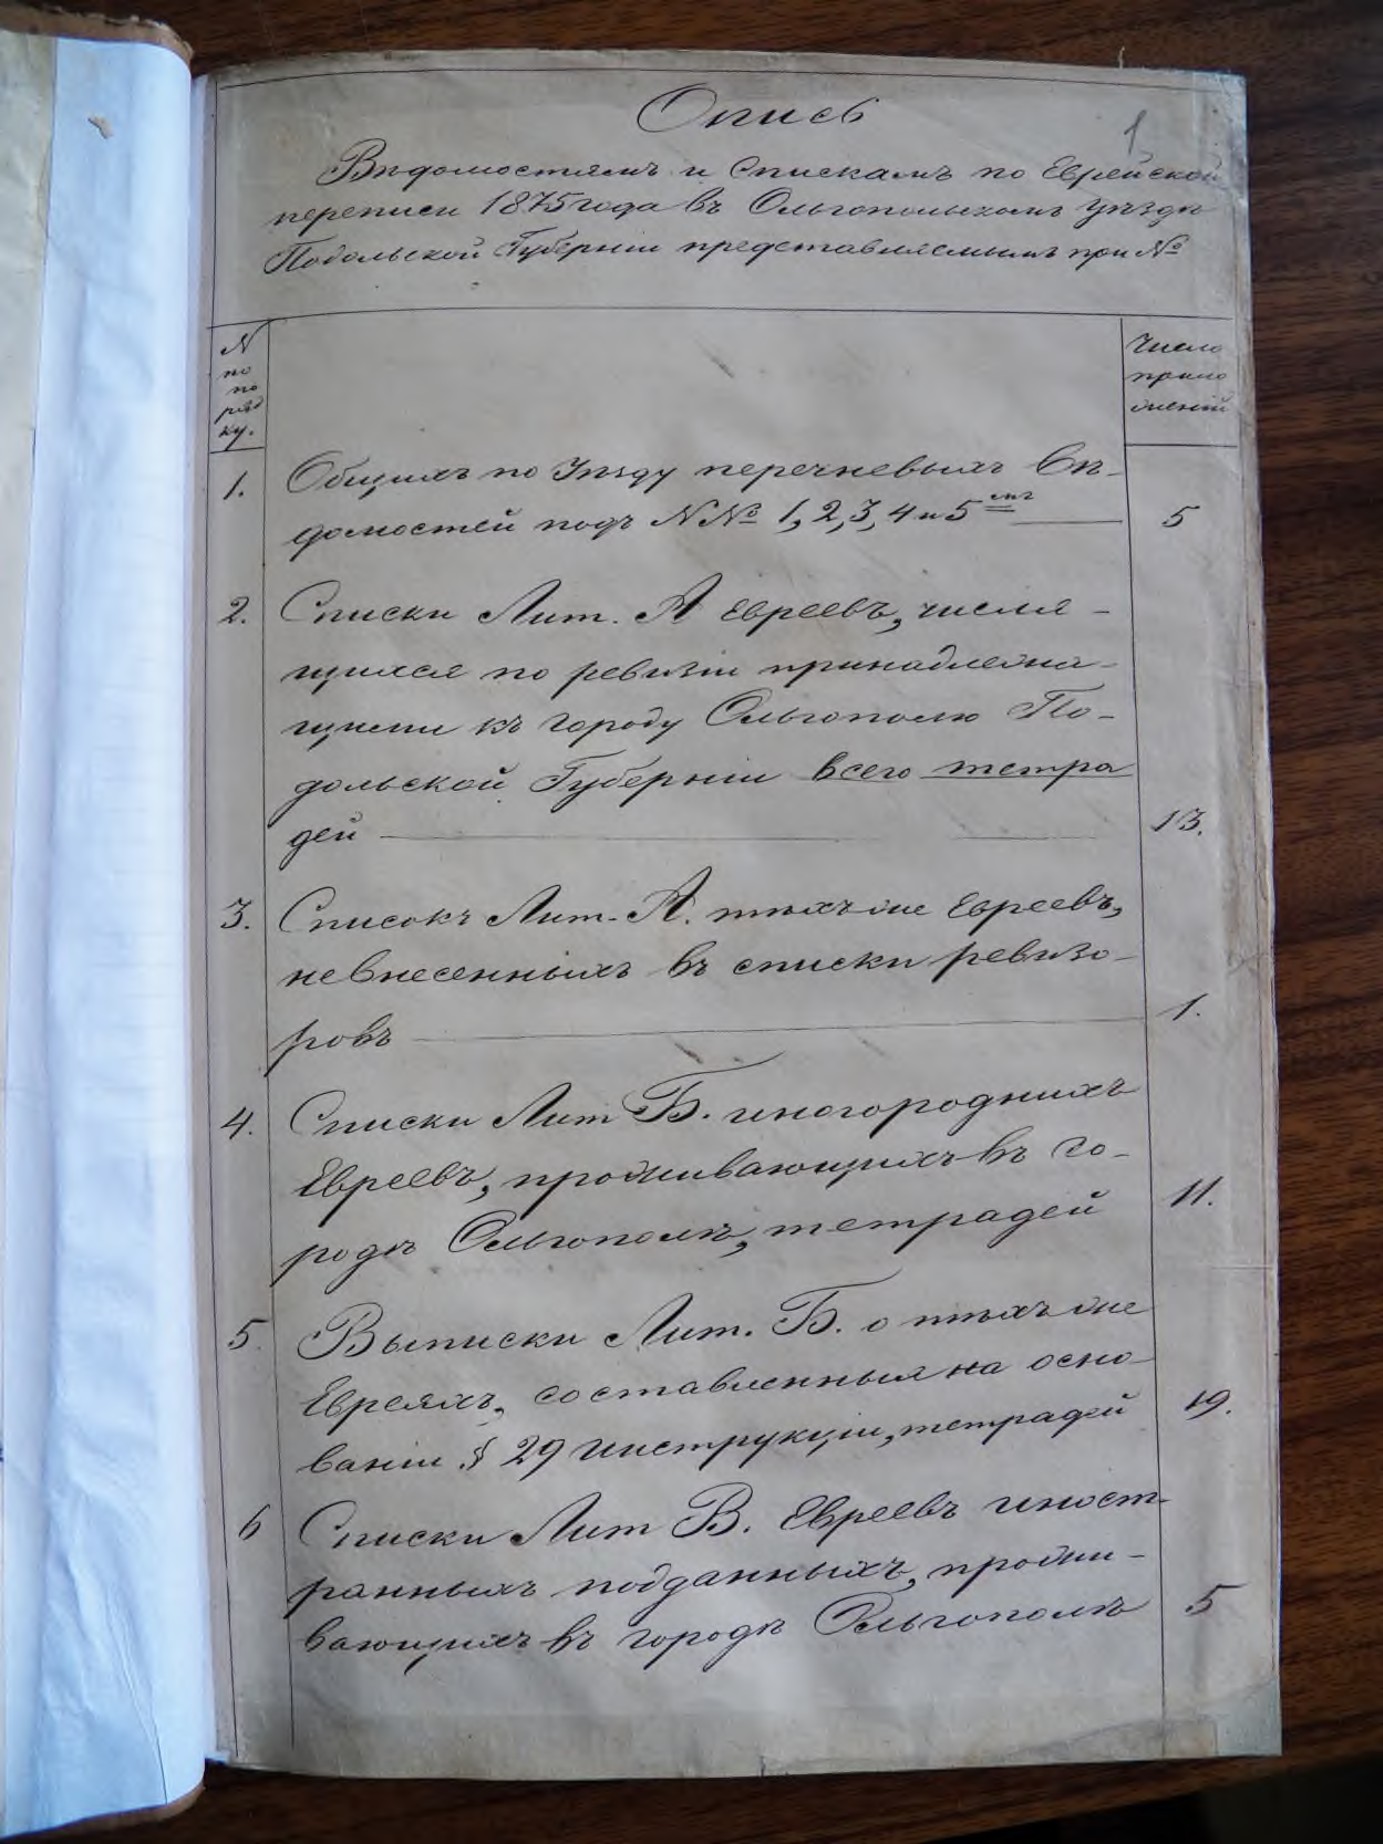 Опись
1
Вѣдомостямъ и спискамъ по Еврейской
переписи 1875 года въ Ольгопольскомъ уѣздѣ
Подольской Губерніи представляемымъ при №
N
по
по
ряд
ку.
Число
прило
женій
1. Общихъ по Уѣзду перечневыхъ Вѣ-
домостей подъ N№ 1, 2, 3, 4 и 5 5
2. Списки Лит. А Евреевъ, числя-
щихся по ревизіи принадлежа-
щими къ городу Ольгополю По-
дольской Губерніи всего тетра
дей 13.
3. Списокъ Лит. А. тѣхъ же Евреевъ,
невнесенныхъ въ списки ревизо-
ровъ 1.
4. Списки Лит Б. иногороднихъ
Евреевъ, проживающихъ въ го-
родѣ Ольгополѣ, тетрадей 11.
5. Выписки Лит. Б. о тѣхъ же
Евреяхъ, составленныя на осно-
ваніи § 29 Инструкціи, тетрадей 19.
6 Списки Лит В. Евреевъ иност-
ранныхъ подданныхъ, прожи-
вающихъ въ городѣ Ольгополѣ 5